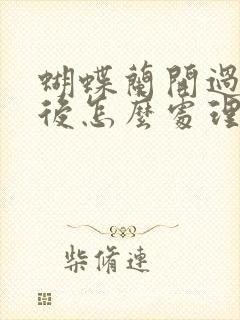 蝴蝶蘭開過
後怎麼處理
柴脩連